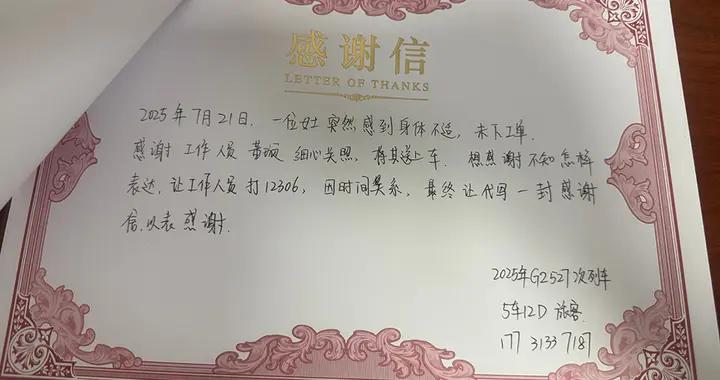 感谢信
LETTER OF THANKS
2025年7月21日，一位女士突然感到身体不适，未下工单．
感谢工作人员黄 细心关照，将其送上车．想感谢不知怎样
表达，让工作人员打12306，因时间关系，最终让代写一封感谢
信，以表感谢．
2025年G2527次列车
5车12D 旅客
177 3133 7187